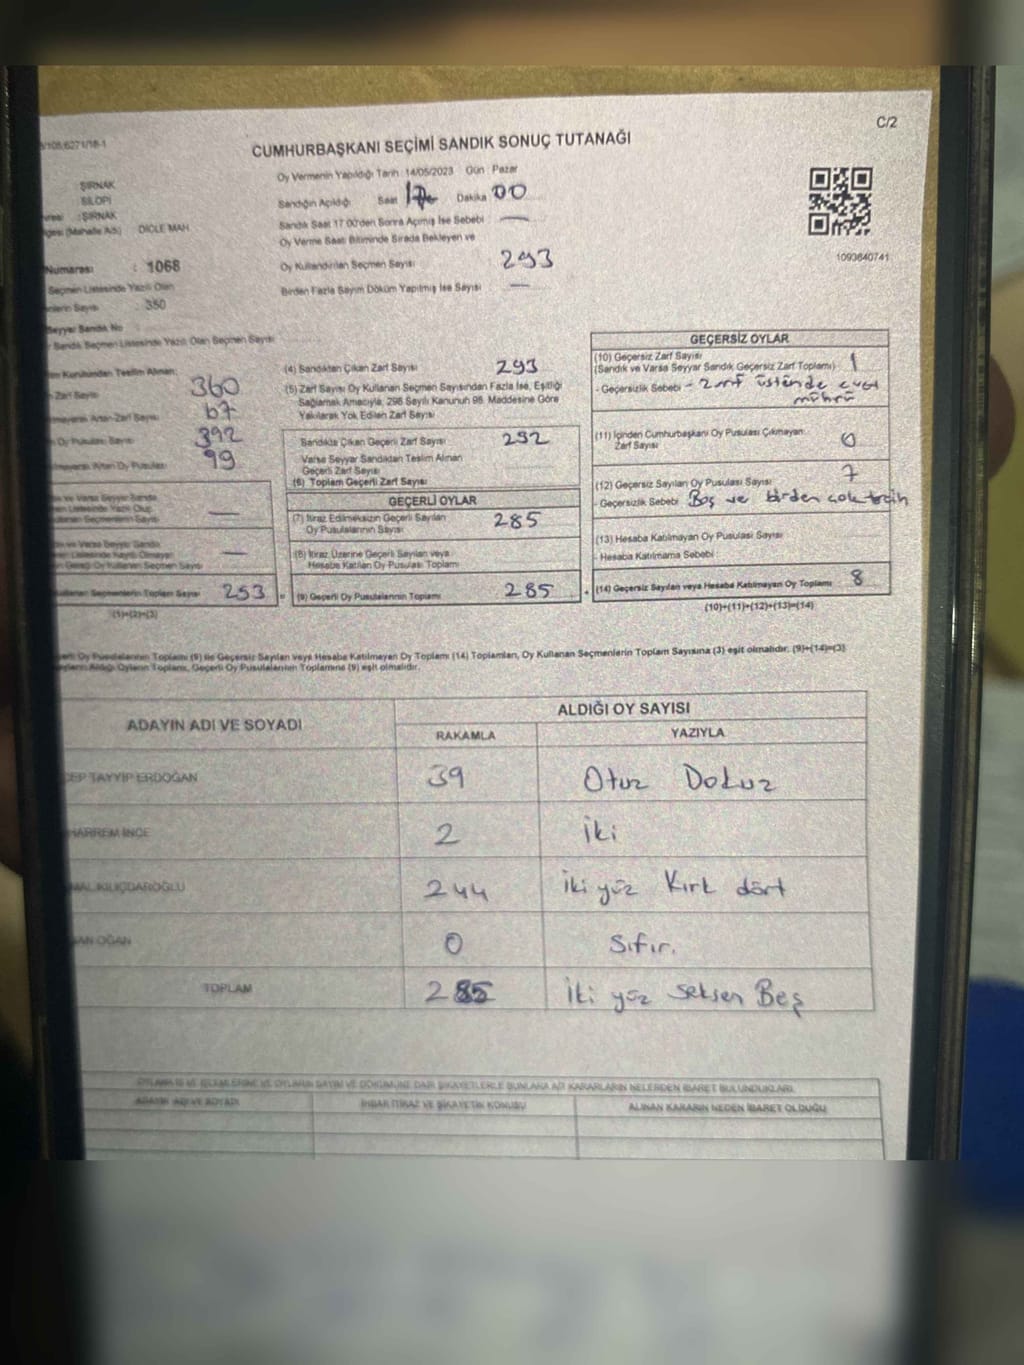 C/2
CUMHURBAŞKANI SEÇİMİ SANDIK SONUÇ TUTANAĞI
Oy Vermenin Yapıldığı Tarih : 14/05/2023 Gün : Pazar
ŞIRNAK
SİLOPİ
: ŞIRNAK
(Mahalle Adı) DİCLE MAH.
Sandığın Açıldığı Saat 17 Dakika 00
Sandık Saat 17:00'den Sonra Açılmış İse Sebebi —
Oy Verme Saati Bitiminde Sırada Bekleyen ve
Oy Kullandırılan Seçmen Sayısı 293
Birden Fazla Sayım Döküm Yapılmış İse Sayısı —
1093640741
Numarası : 1068
Seçmen Listesinde Yazılı Olan
Sayısı : 350
Seyyar Sandık No
Sandık Seçmen Listesinde Yazılı Olan Seçmen Sayısı
Kurulundan Teslim Alınan;
Zarf Sayısı 360
Artan Zarf Sayısı 67
Oy Pusulası Sayısı 392
Artan Oy Pusulası 99
ve Varsa Seyyar Sandık
—
ve Varsa Seyyar Sandık
—
Oy Kullanan Seçmen Sayısı
Seçmenlerin Toplam Sayısı 293 =
(1)+(2)=(3)
(4) Sandıktan Çıkan Zarf Sayısı 293
(5) Zarf Sayısı Oy Kullanan Seçmen Sayısından Fazla İse, Eşitliği
Sağlamak Amacıyla, 298 Sayılı Kanunun 98. Maddesine Göre
Yakılarak Yok Edilen Zarf Sayısı
Sandıkta Çıkan Geçerli Zarf Sayısı 292
Varsa Seyyar Sandıktan Teslim Alınan
Geçerli Zarf Sayısı
(6) Toplam Geçerli Zarf Sayısı
GEÇERLİ OYLAR
(7) İtiraz Edilmeksizin Geçerli Sayılan
Oy Pusulalarının Sayısı 285
(8) İtiraz Üzerine Geçerli Sayılan veya
Hesaba Katılan Oy Pusulası Toplamı
(9) Geçerli Oy Pusulalarının Toplamı 285 +
GEÇERSİZ OYLAR
(10) Geçersiz Zarf Sayısı
(Sandık ve Varsa Seyyar Sandık Geçersiz Zarf Toplamı) 1
- Geçersizlik Sebebi - Zarf üstünde evet
mührü
(11) İçinden Cumhurbaşkanı Oy Pusulası Çıkmayan
Zarf Sayısı 0
(12) Geçersiz Sayılan Oy Pusulası Sayısı 7
- Geçersizlik Sebebi Boş ve birden çok tercih
(13) Hesaba Katılmayan Oy Pusulası Sayısı
- Hesaba Katılmama Sebebi
(14) Geçersiz Sayılan veya Hesaba Katılmayan Oy Toplamı 8
(10)+(11)+(12)+(13)=(14)
Oy Pusulalarının Toplamı (9) ile Geçersiz Sayılan veya Hesaba Katılmayan Oy Toplamı (14) Toplamları, Oy Kullanan Seçmenlerin Toplam Sayısına (3) eşit olmalıdır. (9)+(14)=(3)
Aldığı Oyların Toplamı, Geçerli Oy Pusulalarının Toplamına (9) eşit olmalıdır.
ADAYIN ADI VE SOYADI
ALDIĞI OY SAYISI
RAKAMLA YAZIYLA
CEP TAYYİP ERDOĞAN 39 Otuz Dokuz
HARREM İNCE 2 İki
MAL KILIÇDAROĞLU 244 İki yüz Kırk dört
NAN OĞAN 0 Sıfır.
TOPLAM 285 İki yüz Seksen Beş
OYLAMA İŞ VE İŞLEMLERİNE VE OYLARIN SAYIM VE DÖKÜMÜNE DAİR ŞİKAYETLERLE BUNLARA AİT KARARLARIN NELERDEN İBARET BULUNDUKLARI
ADAYIN ADI VE SOYADI İHBAR İTİRAZ VE ŞİKAYETİN KONUSU ALINAN KARARIN NEDEN İBARET OLDUĞU